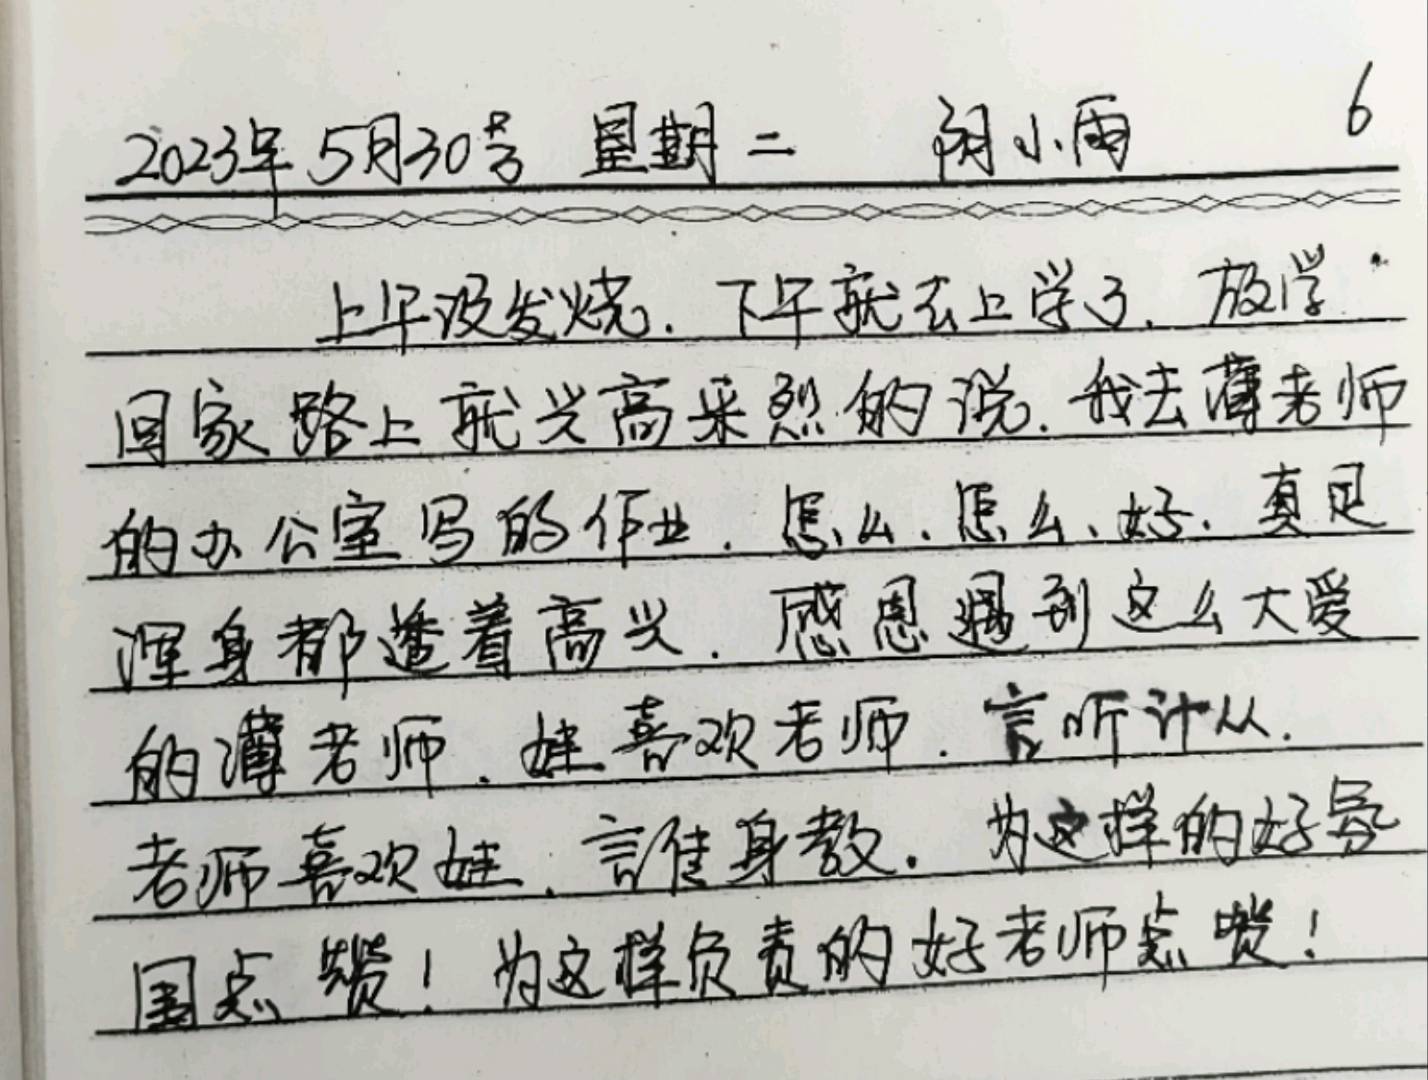 2023年5月30号 星期二 阴小雨 6
上午没发烧.下午就去上学了.放学
回家路上就兴高采烈的说.我去薄老师
的办公室写的作业.怎么.怎么、好.真是
浑身都透着高兴.感恩遇到这么大爱
的薄老师.娃喜欢老师.言听计从.
老师喜欢娃.言传身教.为这样的好氛
围点赞!为这样负责的好老师点赞!